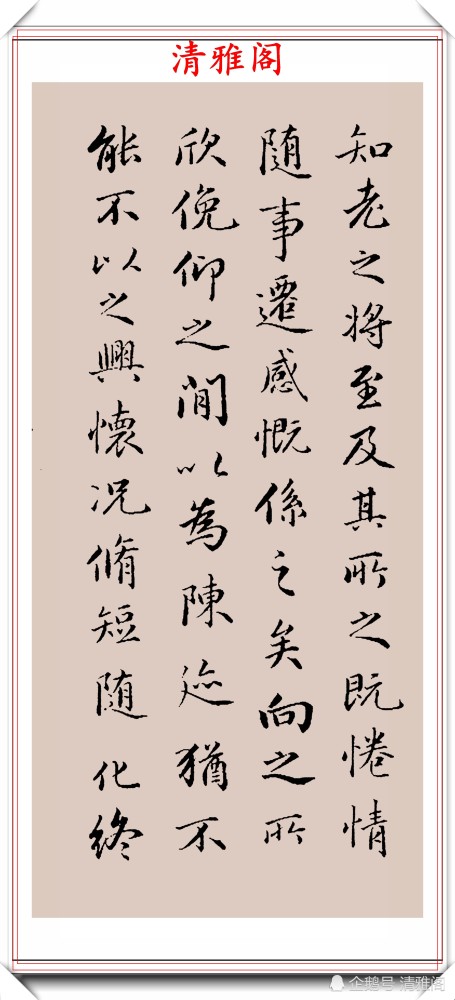 清雅阁
知老之将至及其所之既惓情
随事遷感慨係之矣向之所
欣俛仰之間以為陳迹猶不
能不以之興懷况脩短随化終
企鹅号 清雅阁